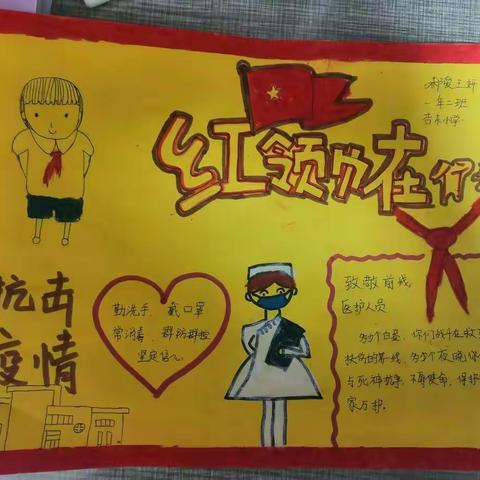 红领巾在行
一年二班
吉木小学
抗击
疫情
勤洗手、戴口罩
常消毒、群防群控
坚定信心
致敬前线
医护人员
多少个白昼，你们战斗在救
扶伤的第一线，多少个夜晚你
与死神抗争，不辱使命，保护
家万护。